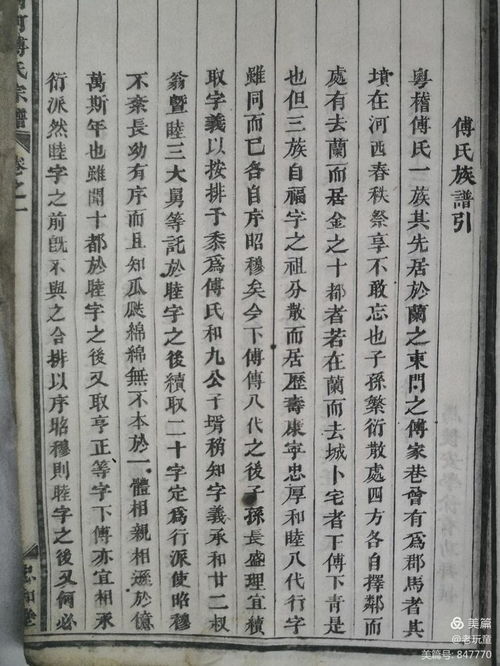 傅氏族譜引
粵稽傅氏一族其先居於蘭之東門之傅家巷曾有爲郡馬者其
墳在河西春秋祭享不敢忘也子孫繁衍散處四方各自擇鄰而
處有去蘭而居金之十都者若在蘭而去城卜宅者下傅下青是
也但三族自福字之祖分散而居歷壽康寧忠厚和睦八代行字
雖同而已各自序昭穆矣今下傅傳八代之後子孫長盛理宜積
取字義以按排予忝爲傅氏和九公子壻稍知字義承和廿二叔
翁暨睦三大舅等託於睦字之後續取二十字定爲行派使昭穆
不紊長幼有序而且知瓜瓞綿綿無不本於一體相親相遜於億
萬斯年也雖聞十都於睦字之後又取亨正等字下傅亦宜相承
衍派然睦字之前旣不與之合排以序昭穆則睦字之後又何必
河傅氏宗譜
卷之一
忠和堂
美篇
@老玩童
美篇号: 847770